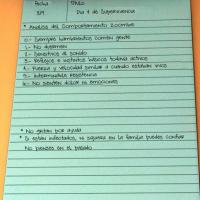 Fecha
Título
3/9
Día 4 de Supervivencia
* Analisis del Comportamiento Zoombie
0.- Siempre hambrientos comen gente
1.- No duermen
2.- Sensitivos al sonido
3.- Reflejos e instintos básicos todavía activos
4.- Fuerza y velocidad similar a cuando estaban vivos
5.- Interminable resistencia
6.- No sienten dolor ni emociones
* No gritar por ayuda
* Si están infectados, ni siquiera en la familia puedes confiar
No pienses en el pasado